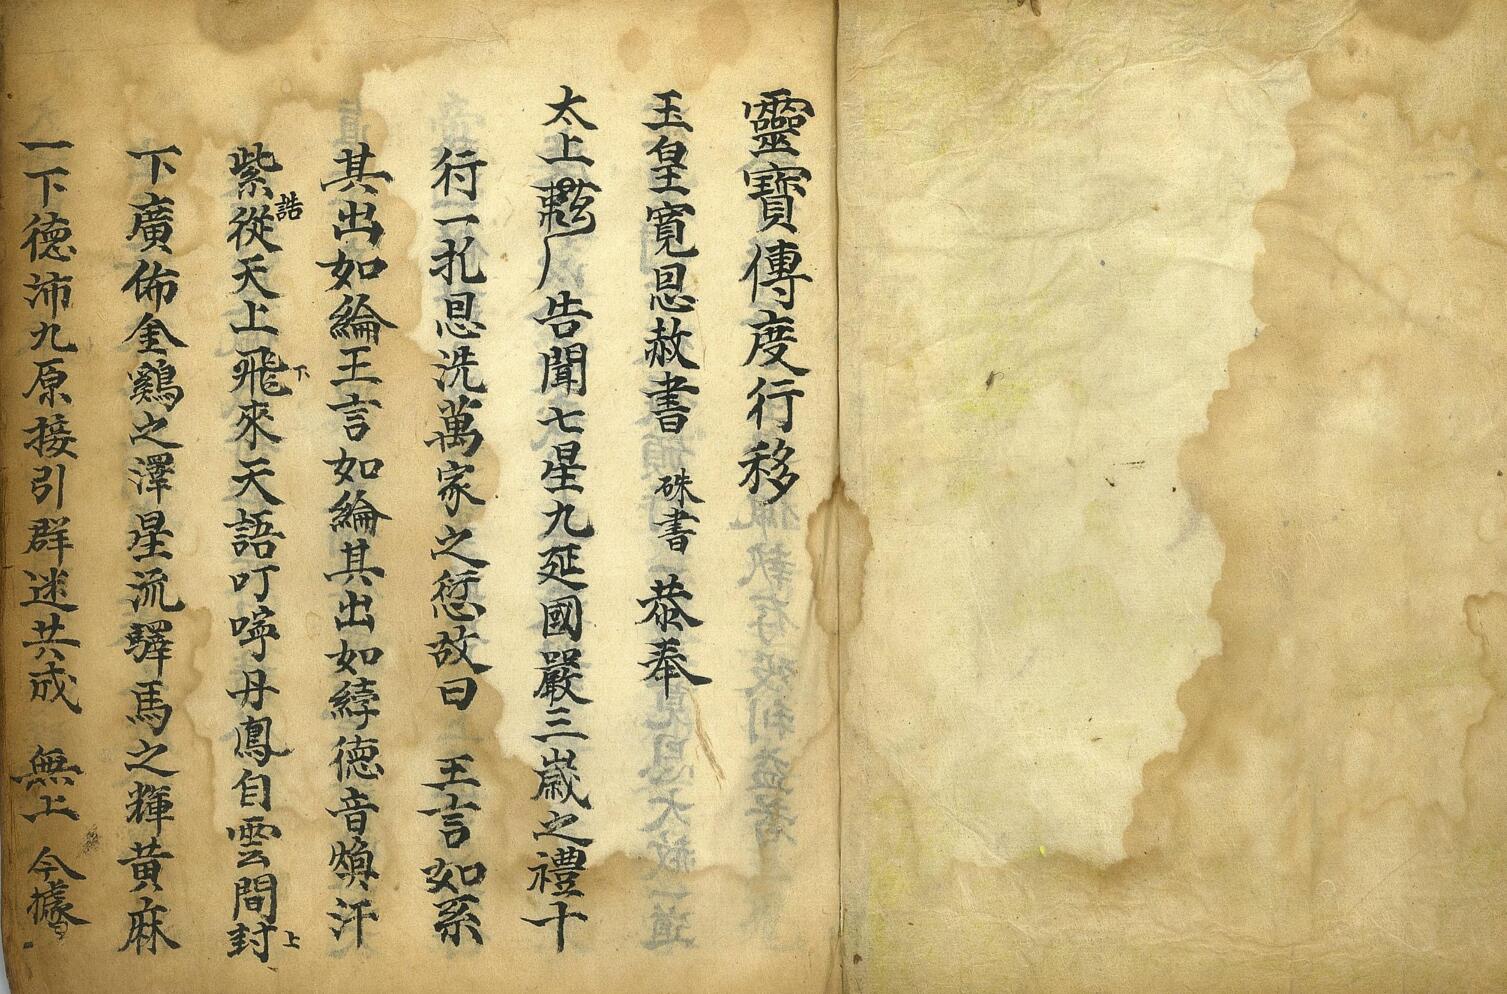 靈寶傳度行移
玉皇寬恩赦書 硃書 恭奉
太上 厂告聞七星九延國嚴三嵗之禮十
行一扎恩洗萬家之愆故曰 王言如系
其出如綸王言如綸其出如綍德音煥汗
紫誥從天上飛下來天語叮嚀丹鳳自雲間封上
下廣佈金鷄之澤星流驛馬之輝黄麻
一下德沛九原接引群迷共成 無上 今據